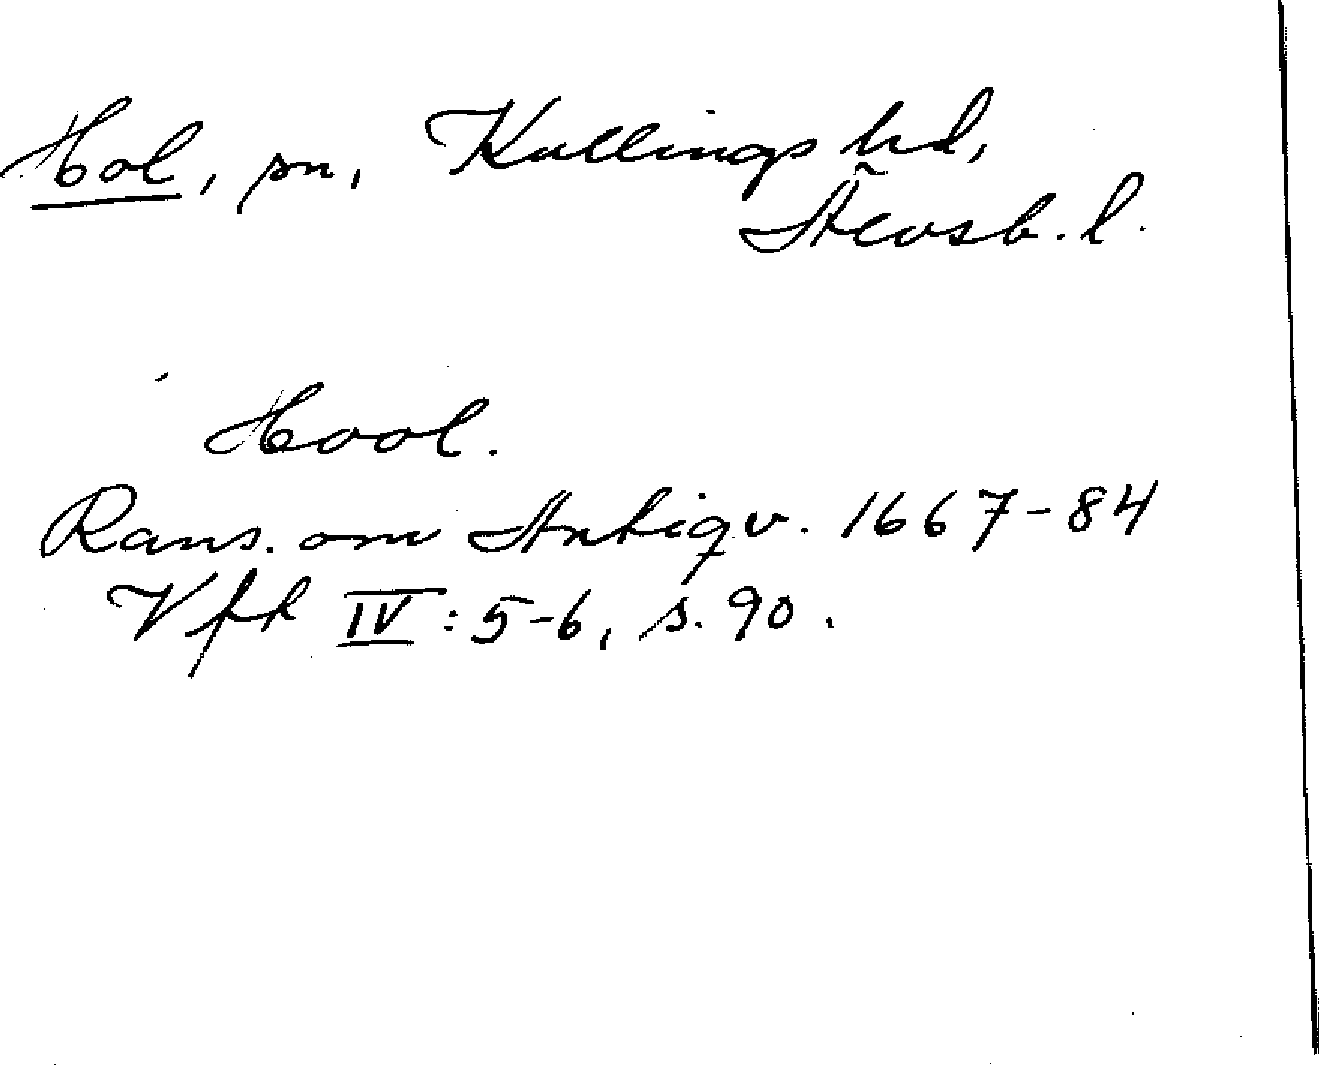 Hol, sn, Kullings hd,
Älvsb. l.
Hool.
Rans. om Antiqv. 1667-84
Vfft IV: 5-6, s. 90.